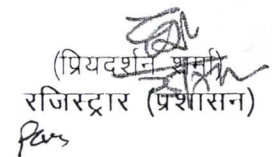 (प्रियदर्शन शर्मा
रजिस्ट्रार (प्रशासन)